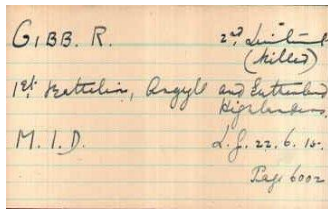 GIBB. R. 2nd Lieutenant
(Killed)
1st Battalion, Argyll and Sutherland
Highlanders.
M.I.D. L.G. 22.6.15.
Page 6002